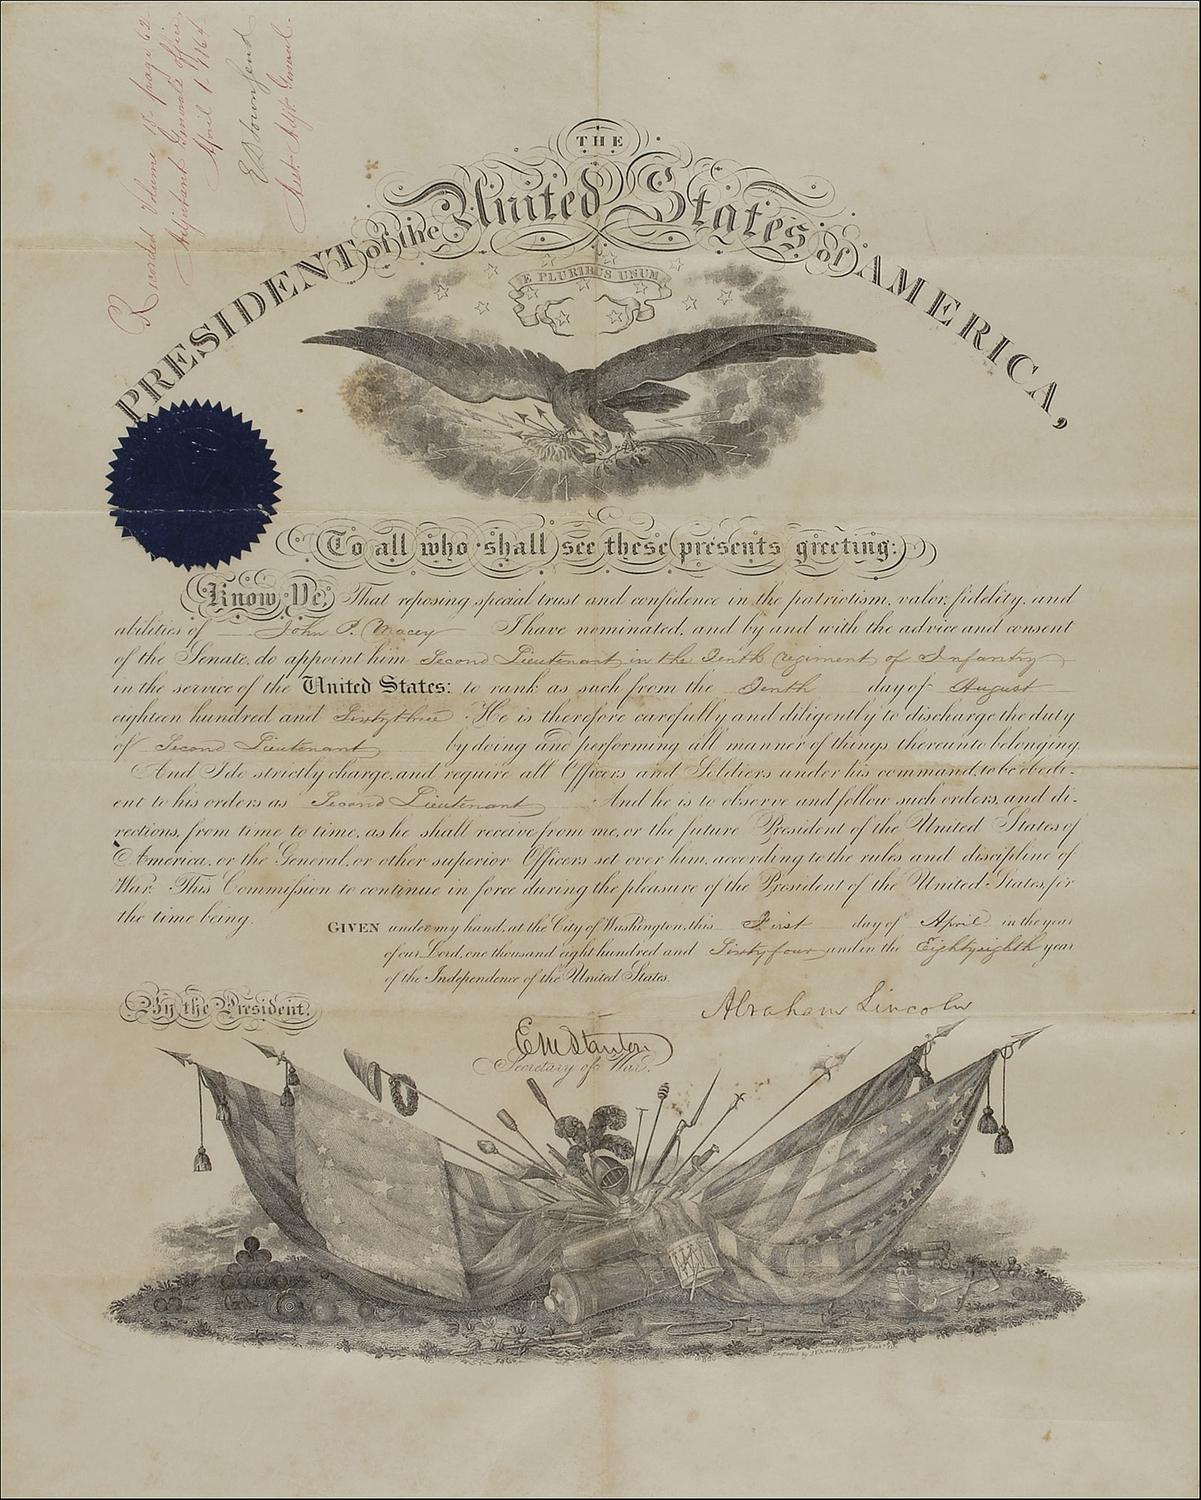 Recorded Volume 12 page 62
Adjutant General's Office
April 1. 1864
E D Townsend
Asst. Adjt. General.
THE
PRESIDENT of the United States of AMERICA,
E PLURIBUS UNUM
To all who shall see these presents greeting:
Know Ye, That reposing special trust and confidence in the patriotism, valor, fidelity, and
abilities of John P. Macey I have nominated, and by and with the advice and consent
of the Senate, do appoint him Second Lieutenant in the Tenth regiment of Infantry
in the service of the United States: to rank as such from the Tenth day of August
eighteen hundred and Sixty three. He is therefore carefully and diligently to discharge the duty
of Second Lieutenant by doing and performing all manner of things thereunto belonging.
And I do strictly charge, and require all Officers and Soldiers under his command, to be obedi-
ent to his orders as Second Lieutenant And he is to observe and follow such orders, and di-
rections, from time to time, as he shall receive from me, or the future President of the United States of
America, or the General, or other superior Officers set over him, according to the rules and discipline of
War. This Commission to continue in force during the pleasure of the President of the United States, for
the time being.
GIVEN under my hand, at the City of Washington, this First day of April in the year
of our Lord, one thousand eight hundred and Sixty four and in the Eighty eighth year
of the Independence of the United States.
By the President.
Abraham Lincoln
E M Stanton
Secretary of War.
Engraved by